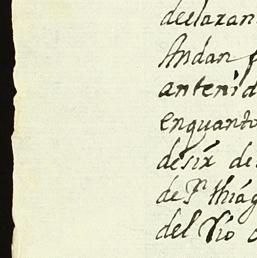 declaran
Andan
antenid
enquanto
desir de
de Sn thiag
del Rio